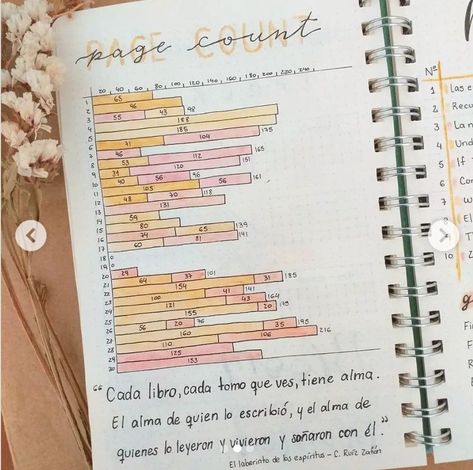 PAGE COUNT
page count
20 40 60 80 100 120 140 160 180 200 220 240
1 65
2 96
3 55 43 98
4 188
5 185
6 71 104 175
7 46
8 53 112 165
9 31 120 151
10 40 56 96
11 105 56 161
12 48 70 118
13 131
14 59
15 80 65 139
16 74 81 141
17 60
18 0
19 0
20 29 37 101
21 64 31 185
22 154 41 141
23 100 43 164
24 121 20 175
25 155
26 56 20 76 35 195
27 160 106 216
28 110
29 125
30 153
"Cada libro, cada tomo que ves, tiene alma.
El alma de quien lo escribió, y el alma de
quienes lo leyeron y vivieron y soñaron con él."
El laberinto de los espíritus - C. Ruiz Zafón
Nº
1 Las
2
3 La
4
5 If
6
7
8 El
9
10